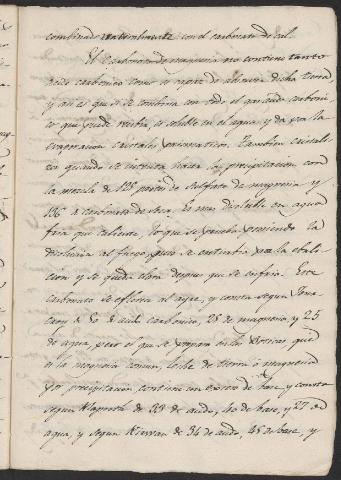 combinado naturalmente con el carbonato de cal.
El Carbonato de magnesia no contiene tanto
acido carbonico como es capaz de absorver dicha tierra
y asi es que si se combina con todo el gas acido carboni-
co que puede recibir, es soluble en el agua, y da por la
evaporacion cristales prismaticos. Tambien cristali-
za quando se intenta hacer la precipitacion con
la mezcla de 125 partes de sulfato de magnesia y
136 de carbonato de sosa. Es mas disoluble en agua
fria que caliente, lo que se prueba poniendo la
disolucion al fuego, pues se enturbia por la ebuli-
cion y se queda clara despues que se enfria. Este
carbonato se eflorece al ayre, y consta segun Four-
croy de 50 de acido carbonico, 25 de magnesia, y 25
de agua, pero el que se prepara en las Boticas, que
es la magnesia comun, leche de tierra ó magnesia
por precipitacion contiene un exceso de base, y consta
segun Klaproth de 33 de acido, 40 de base, y 27 de
agua, y segun Kirwan de 34 de acido, 45 de base, y